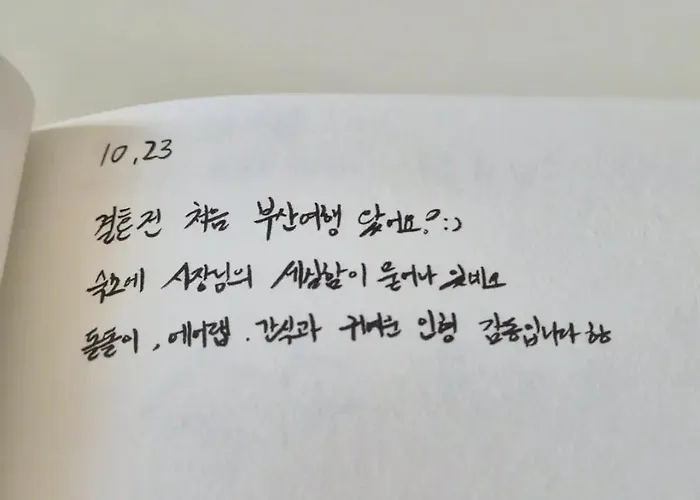 10.23
결혼전 처음 부산여행 왔어요? :)
숙소에 사장님의 세심함이 묻어나 있네요
돌돌이, 에어랩. 간식과 귀여운 인형 감동입니다 ㅎㅎ